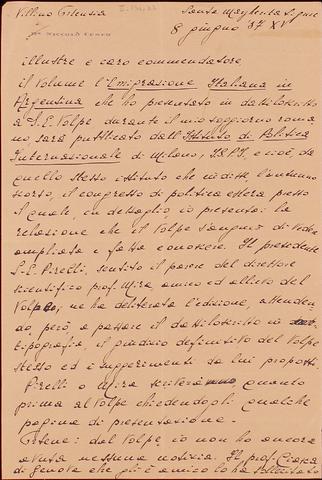 Villino Gitensia
Santa Margherita Ligure
DR NICCOLÒ CUNEO
8 giugno 37 XV
illustre e caro commendatore
il volume L'Emigrazione Italiana in
Argentina che ho presentato in dattiloscritto
a S.E. Volpe durante il mio soggiorno roma
no, sarà pubblicato dall'Istituto di Politica
Internazionale di Milano, ISPI, e cioè, da
quello stesso istituto che indisse l'autunno
scorso, il congresso di politica estera presso
il quale, in dettaglio, io presentai la
relazione che il Volpe s'augurò di vedere
ampliata e fatta conoscere. Il presidente
S.E. Pirelli, sentito il parere del direttore
scientifico prof. Mira, amico ed allievo del
Volpe, ne ha deliberata l'edizione, attenden
do però a passare il dattiloscritto in
tipografia, il giudizio definitivo del Volpe
stesso ed i suggerimenti da lui proposti.
Pirelli o Mira scriveranno quanto
prima al Volpe chiedendogli qualche
pagina di presentazione.
dal Volpe, io non ho ancora
avuta nessuna notizia. Il prof.
di Genova che gli è amico lo ha sollecitato